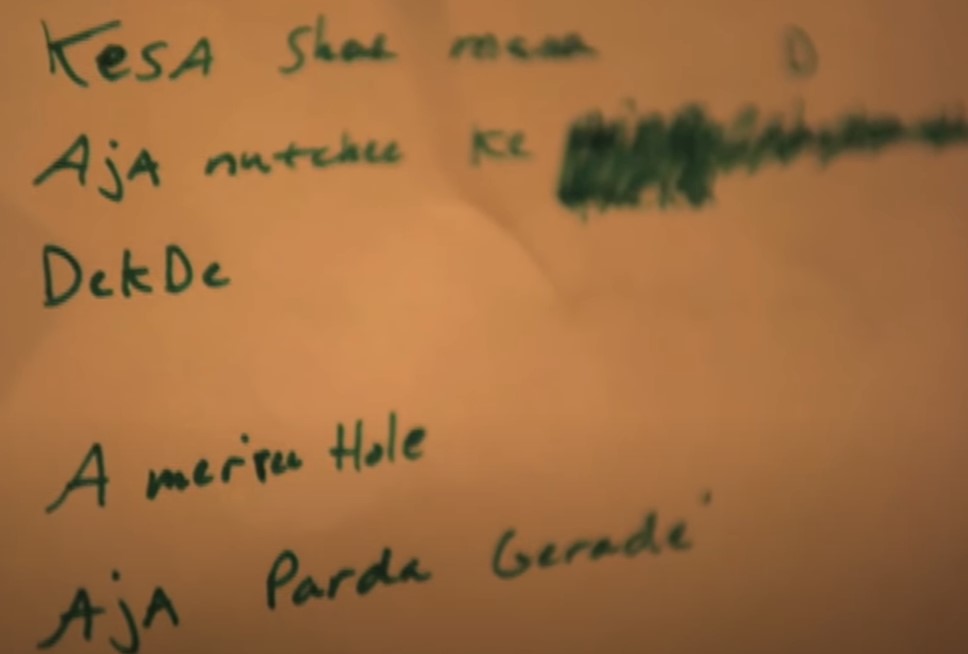 KesA Shae meaa
AjA nutchee Ke
DekDe
A meriru Hole
AjA Parda Gerade